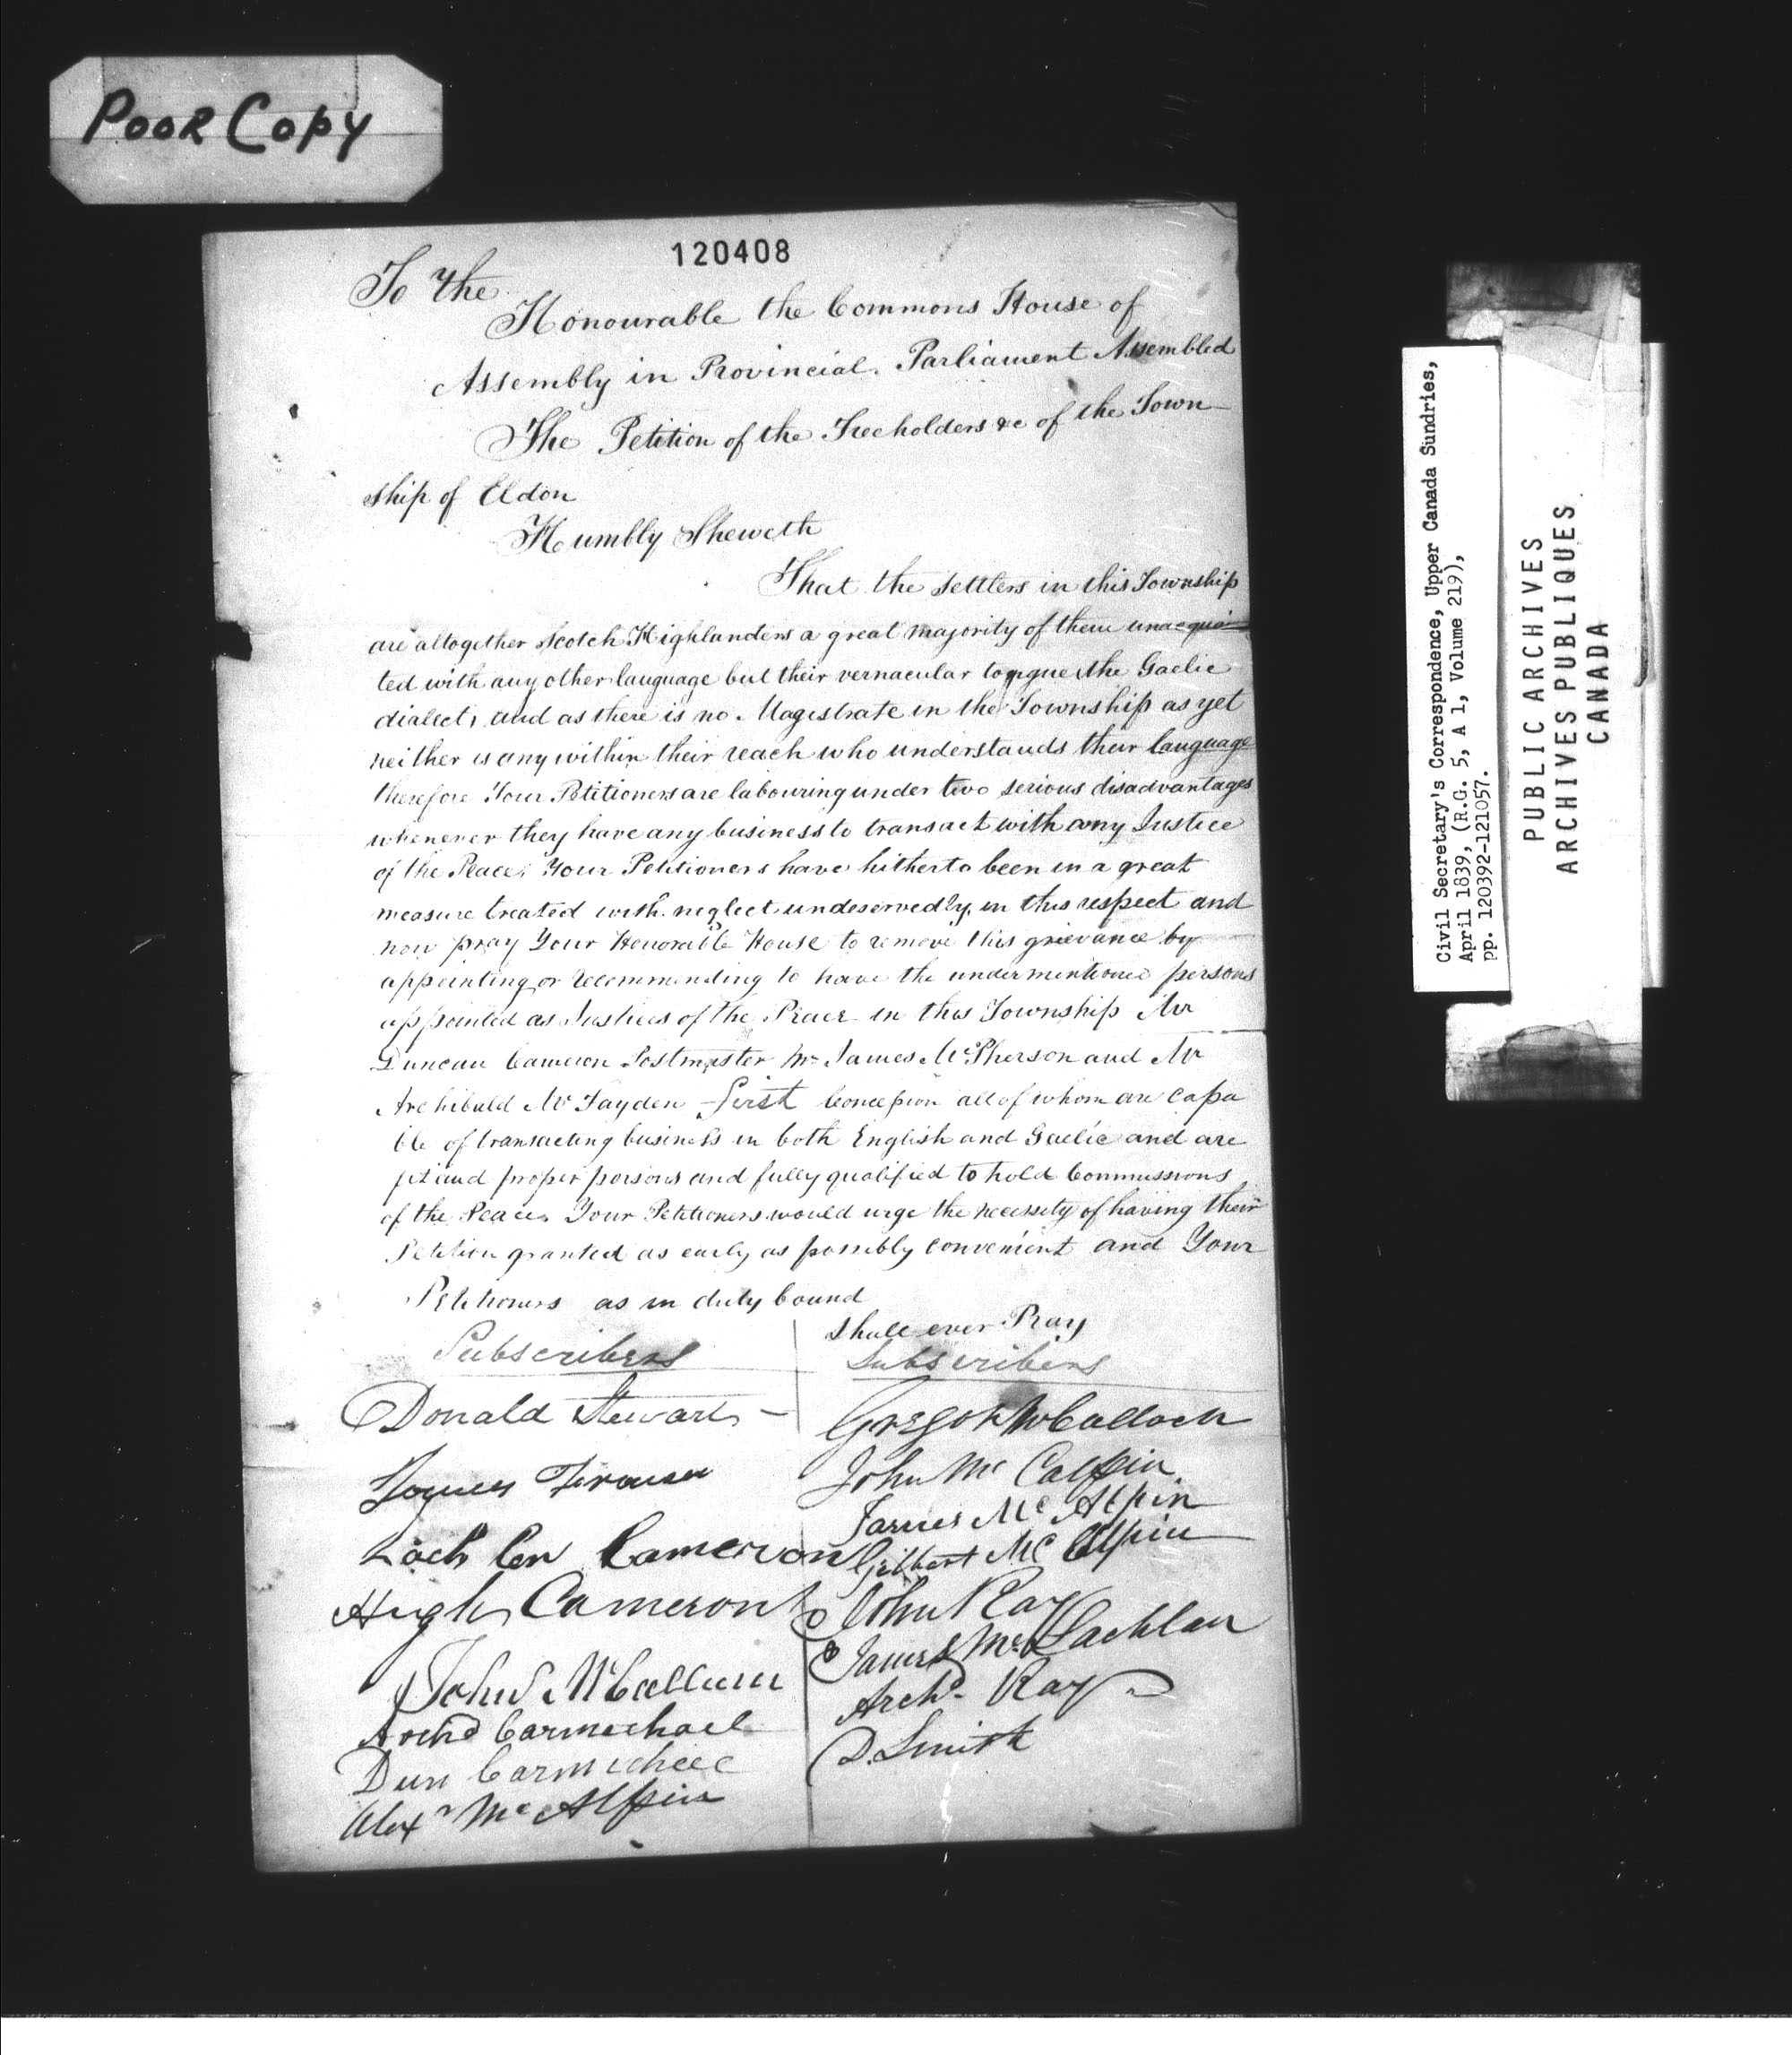 POOR COPY
120408
To the
Honourable the Commons House of
Assembly in Provincial Parliament Assembled
The Petition of the Freeholders &c of the Town
ship of Eldon
Humbly Sheweth
That the settlers in this Township
are altogether Scotch Highlanders a great majority of them unacquain
ted with any other language but their vernacular tongue the Gaelic
dialect, and as there is no Magistrate in the Township as yet
neither is any within their reach who understands their language
therefore Your Petitioners are labouring under two serious disadvantages
whenever they have any business to transact with any Justice
of the Peace; Your Petitioners have hitherto been in a great
measure treated with neglect undeservedly in this respect and
now pray Your Honorable House to remove this grievance by
appointing or recommending to have the undermentioned persons
appointed as Justices of the Peace in this Township Mr
Duncan Cameron Postmaster Mr James McPherson and Mr
Archibald McFayden first Concession all of whom are capa
ble of transacting business in both English and Gaelic and are
fit and proper persons and fully qualified to hold Commissions
of the Peace, Your Petitioners would urge the necessity of having their
Petition granted as early as possibly convenient and Your
Petitioners as in duty bound
shall ever Pray
Subscribers
Donald Stewart
Lach Cameron
Hugh Cameron
John McCallum
Archd Carmichael
Dun Carmichael
Alexr McAlpin
Subscribers
Gregor McCalloch
John Mc Calpin
James Mc Alpin
Gilbert Mc Alpin
John Ray
James McLachlan
Archd Ray
D. Smith
Civil Secretary's Correspondence, Upper Canada Sundries,
April 1839, (R.G. 5, A 1, Volume 219),
pp. 120392-121057.
PUBLIC ARCHIVES
ARCHIVES PUBLIQUES
CANADA